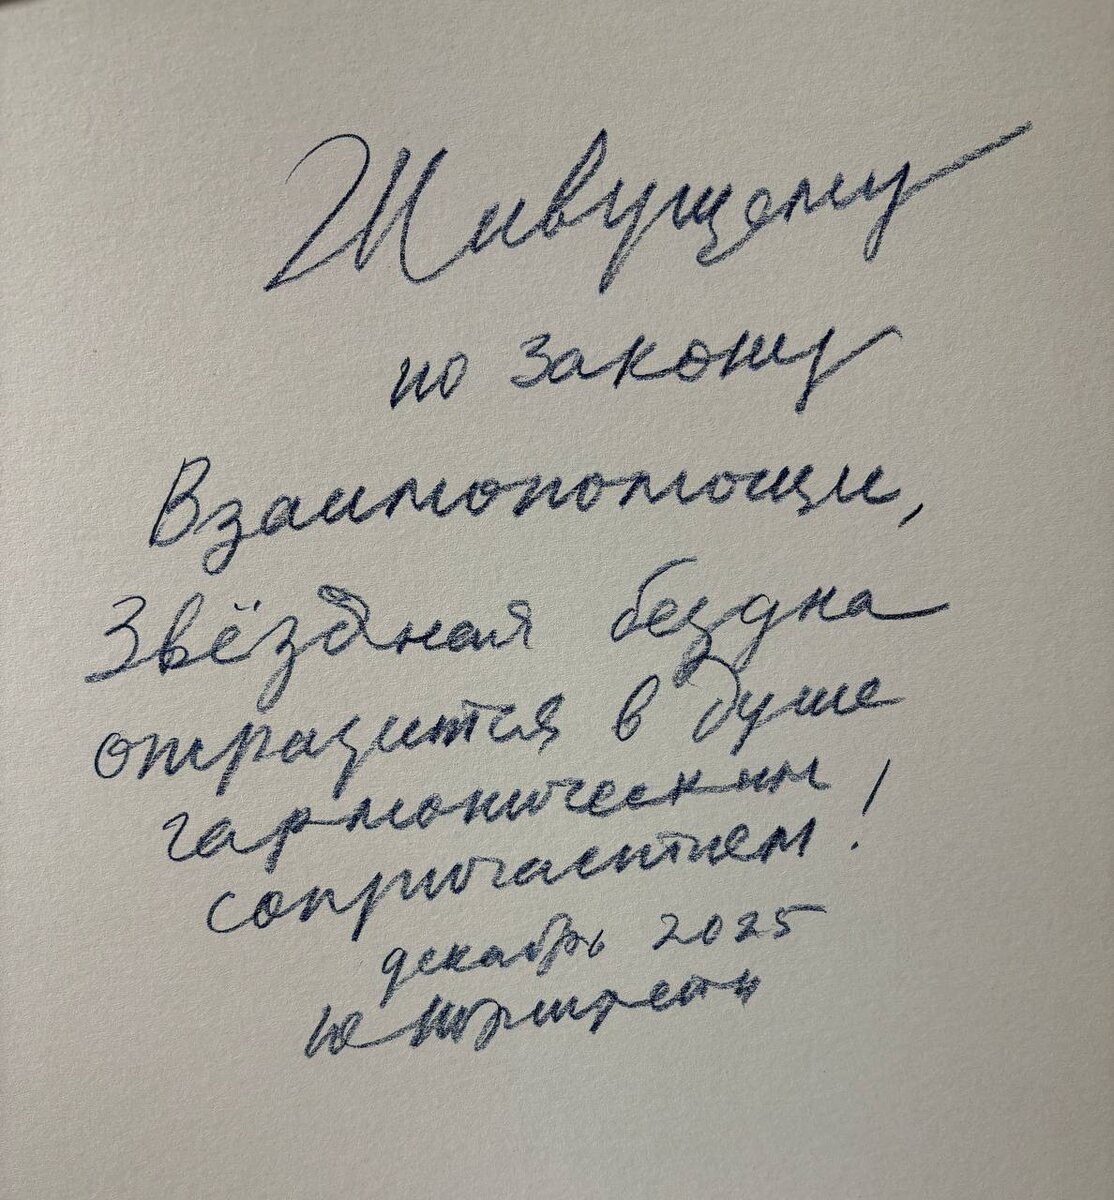 Живущему
по закону
Взаимопомощи,
Звёздная бездна
отразится в душе
гармоническим
сопричастием!
декабрь 2025
Ю